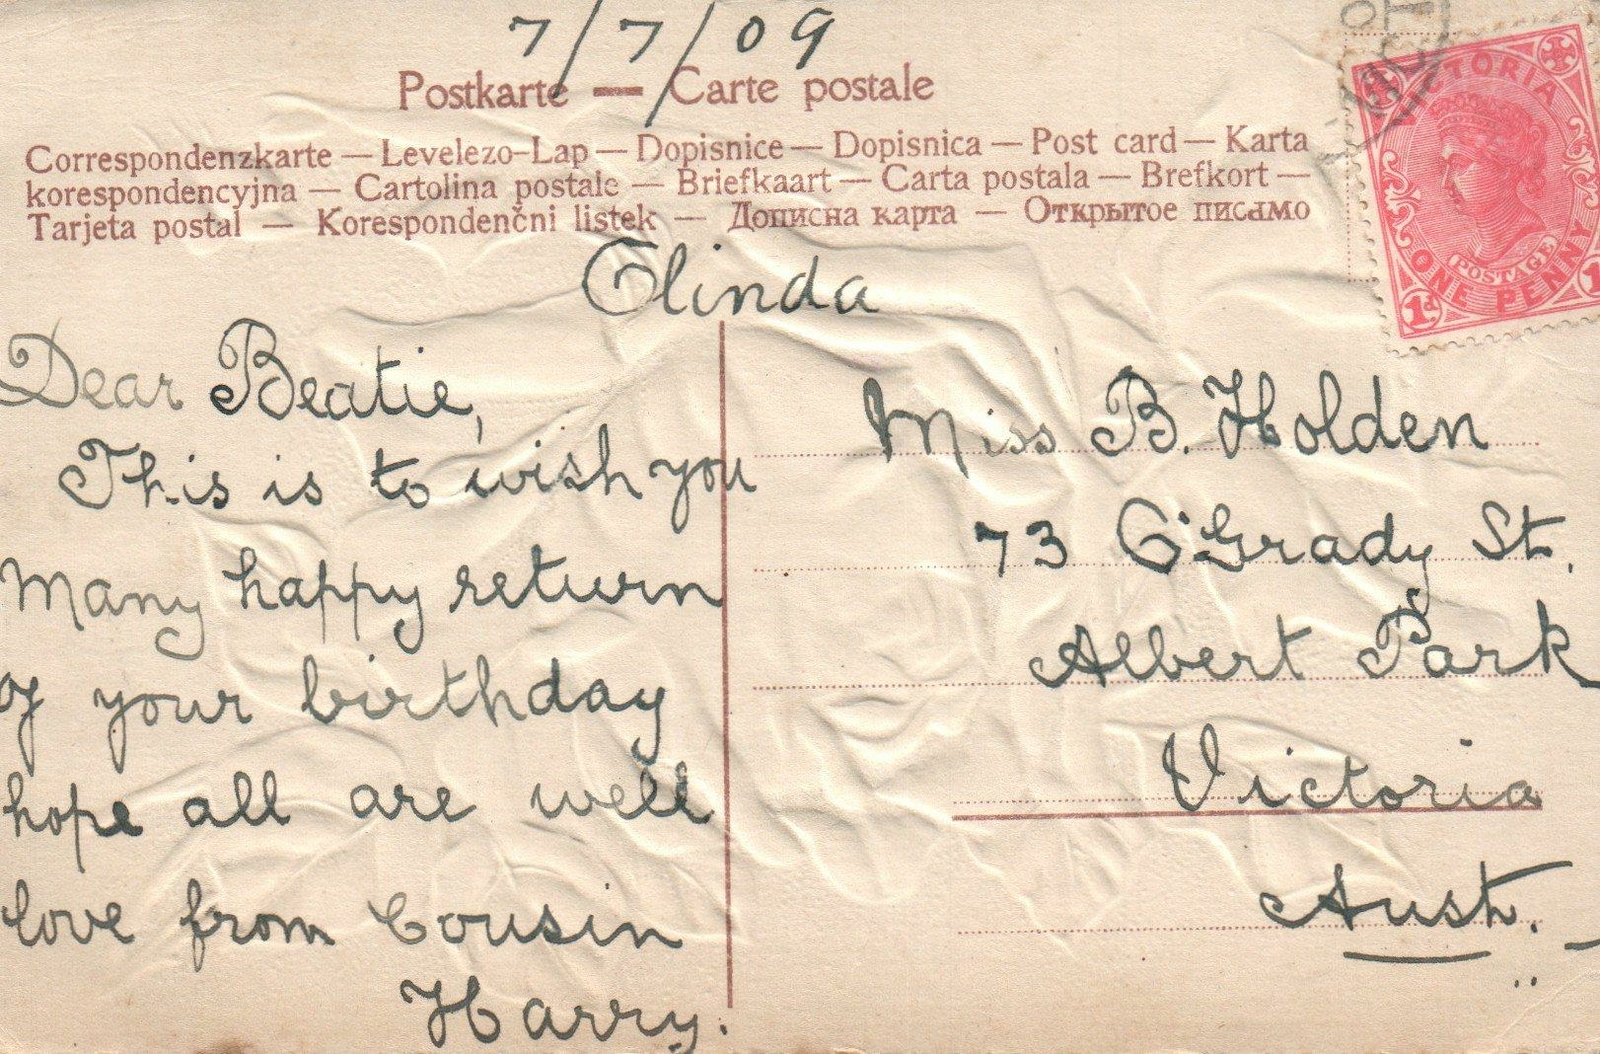 7/7/09
Postkarte — Carte postale
Correspondenzkarte — Levelezo-Lap — Dopisnice — Dopisnica — Post card — Karta
korespondencyjna — Cartolina postale — Briefkaart — Carta postala — Brefkort —
Tarjeta postal — Korespondenčni listek — Дописна карта — Открытое писамо
Olinda
Dear Beatie,
This is to wish you
many happy return
of your birthday
hope all are well
love from Cousin
Harry.
Miss B. Holden
73 O'Grady St.
Albert Park
Victoria
Aust.
VICTORIA
POSTAGE
ONE PENNY
1d 1